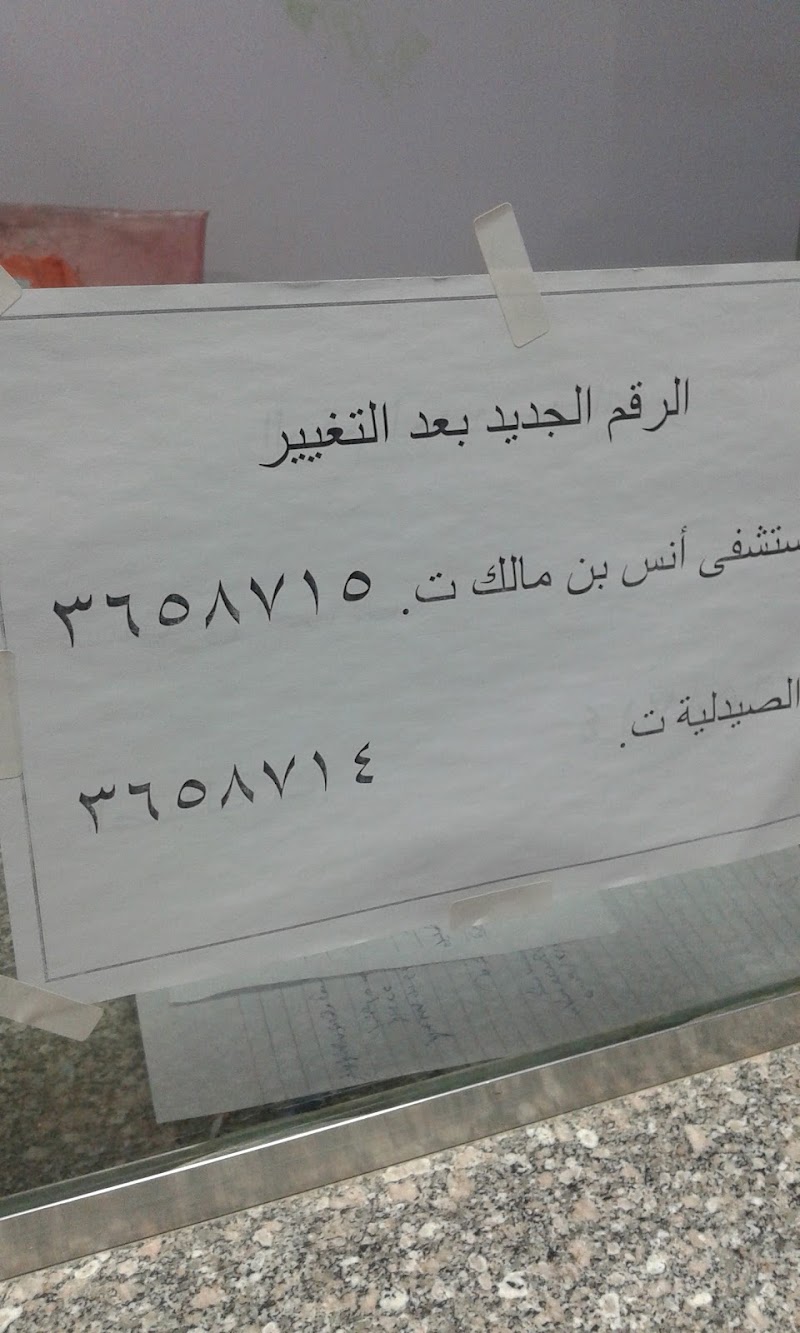 الرقم الجديد بعد التغيير
ستشفى أنس بن مالك ت. ٣٦٥٨٧١٥
الصيدلية ت. ٣٦٥٨٧١٤